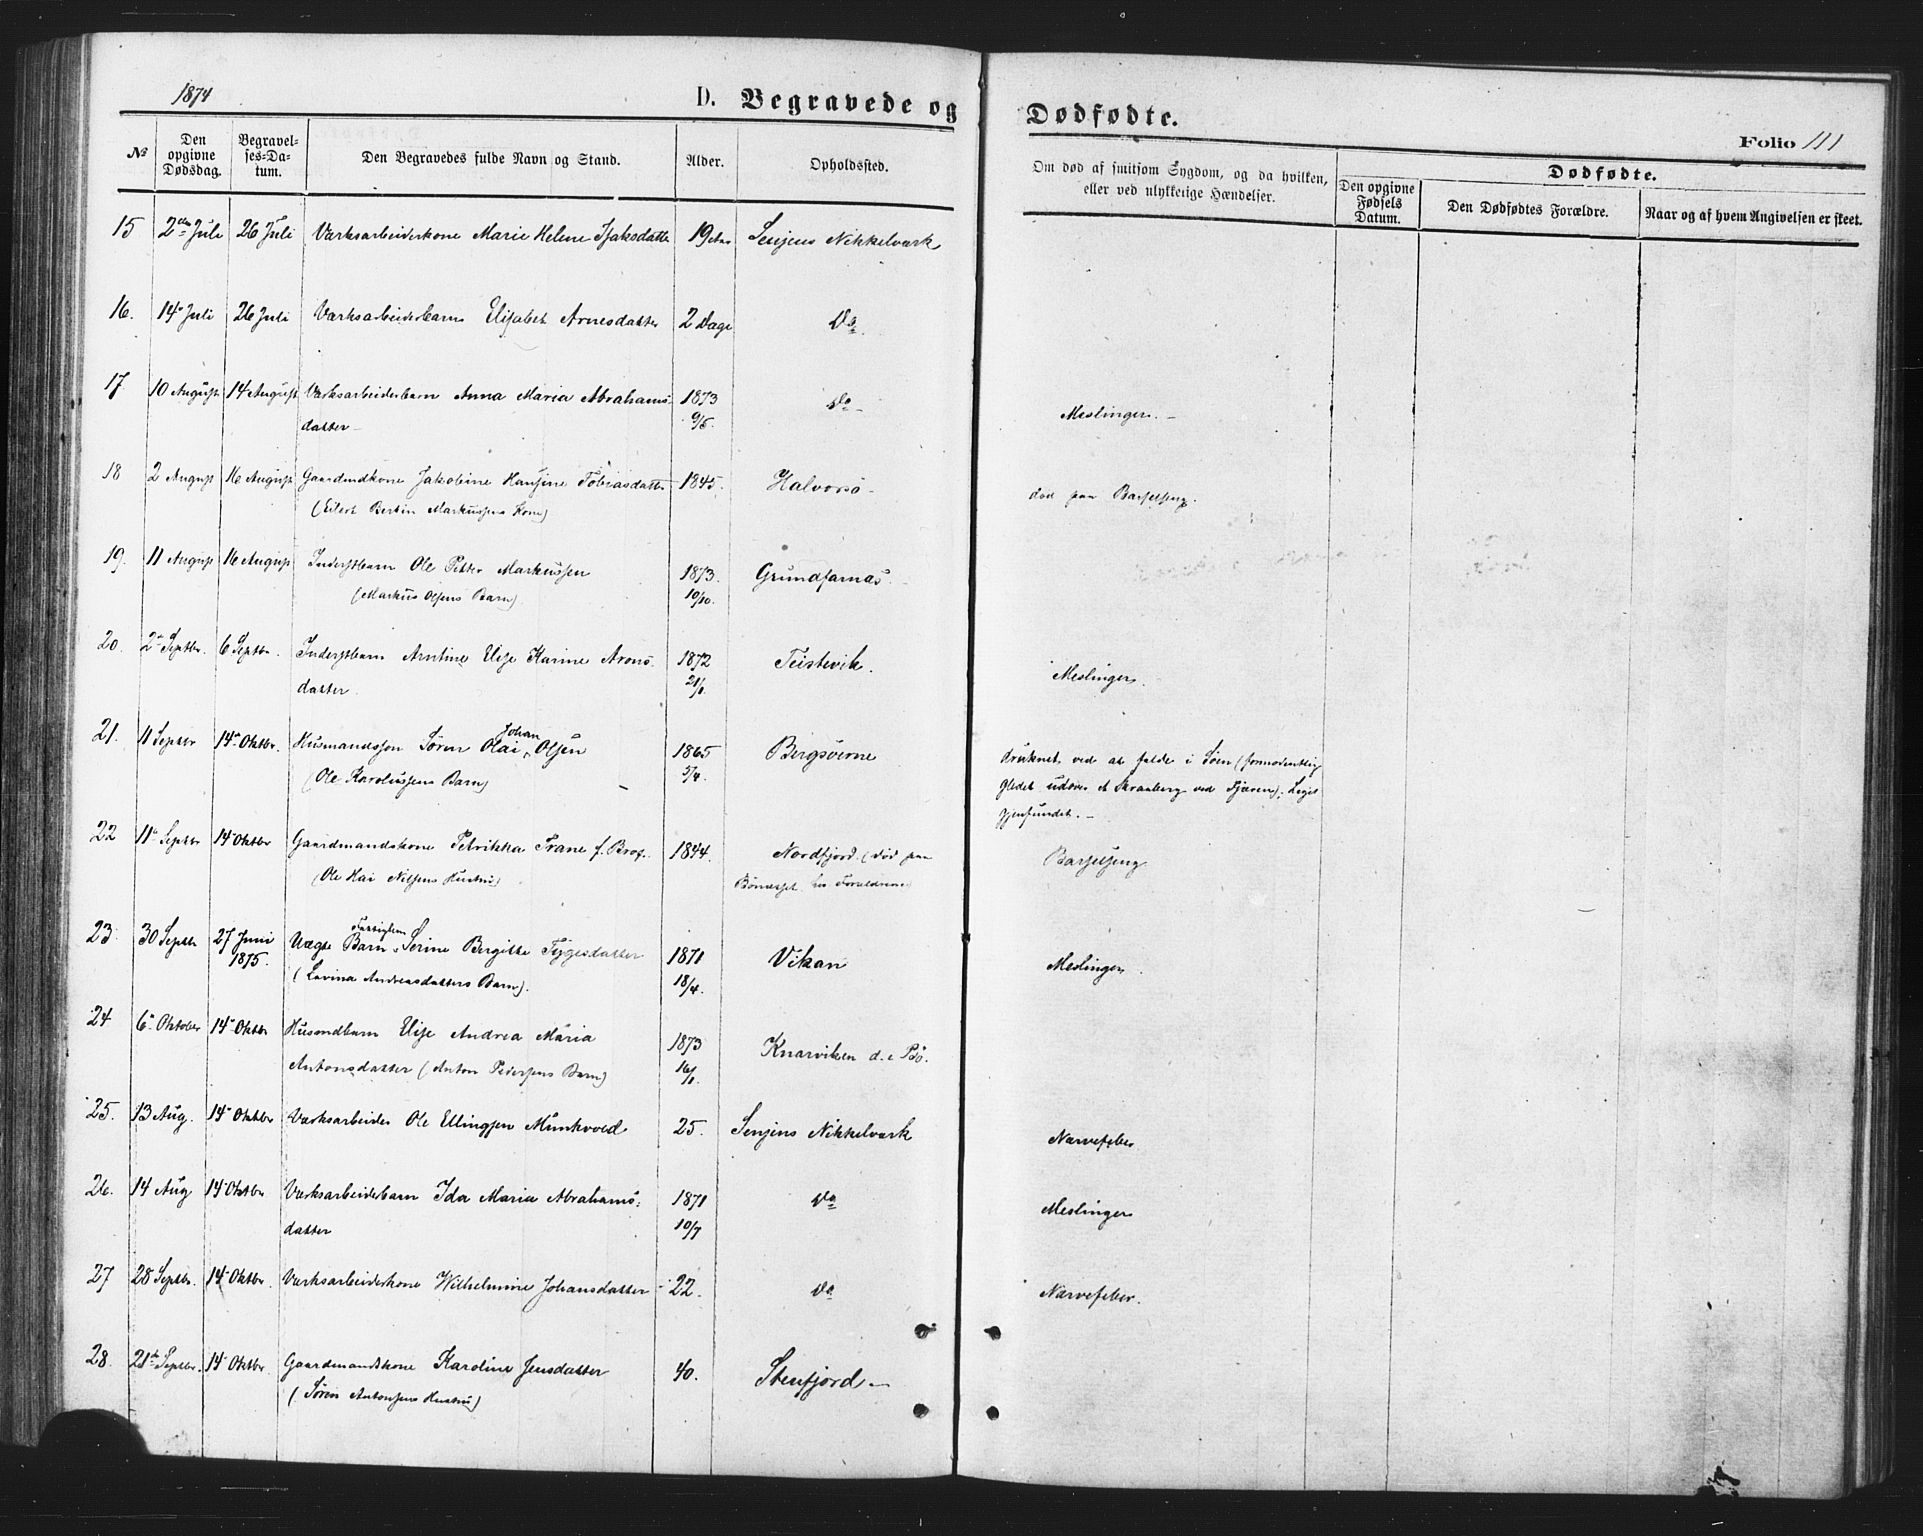 1874
D. Begravede og Dødfødte.
Folio 111
№ Den opgivne Dødsdag. Begravelses-Datum. Den Begravedes fulde Navn og Stand. Alder. Opholdssted. Om død af smitsom Sygdom, og da hvilken, eller ved ulykkelige Hændelser. Dødfødte.
Den opgivne Fødsels Datum. Den Dødfødtes Forældre. Naar og af hvem Angivelsen er skeet.
15 2den Juli 26 Juli Værksarbeiderkone Marie Helene Isaksdatter 19 Aar Senjens Nikkelværk
16. 14de Juli 26 Juli Værksarbeiderbarn Elisabet Arnesdatter 2 Dage Do
17 10 August 14 August Værksarbeiderbarn Anna Maria Abrahams- 1873 Do Meslinger. –
datter – 9/5.
18 2 August 16 August Gaardmdkone Jakobine Hansine Tobiasdatter 1845. Halvorsö. død paa Barselseng.
(Eilert Bertin Markussens Kone)
19. 11 August 16 August Inderstbarn Ole Petter Markussen 1873. Grundfarnæs.
(Markus Olsens Barn) 10/10.
20. 2de Septbr. 6 Septbr. Inderstbarn Arntine Elise Karine Arons- 1872 Teistevik. Meslinger.
datter. 21/1.
21. 11 Septbr 14de Oktbr. Husmandssøn Søren Olai Johan Olsen 1865 Bergsøerne druknet ved at falde i Søen (formodentlig
(Ole Karolussens Barn) 5/4. gledet udover et Skraaberg ved Fjæren); Liget
gjenfundet. –
22 11te Septbr 14 Oktbr Gaardmandskone Petrikka Trane f. Brox. 1844. Nordfjord. (død paa Barselseng
(Ole Hai Nilsens Hustru) Bönæsset hos Forældrene)
23. 30 Septbr 27 Juni Uægte Barn Fattiglem Serine Bergitte Tygesdatter 1871 Vikan Meslinger.
1875. (Lovina Andreasdatters Barn). 18/4.
24 6te Oktober 14 Oktbr Husmdbarn Elise Andrea Maria 1873 Knarviken d. e Bö.
Antonsdatter (Anton Pedersens Barn) 16/1.
25. 13 Aug. 14 Oktbr Værksarbeider Ole Ellingsen Munkvold 25. Senjens Nikkelværk Nervefeber
26. 14 Aug 14 Oktbr Værksarbeiderbarn Ida Maria Abrahams- 1871 Do Meslinger
datter 10/7
27 28 Septbr. 14 Oktbr. Værksarbeiderkone Wilhelmine Johansdatter 22. Do Nervefeber.
28. 21de Septbr. 14 Oktbr. Gaardmandskone Karoline Jensdatter 40. Stenfjord –
(Sören Antonsens Hustru)